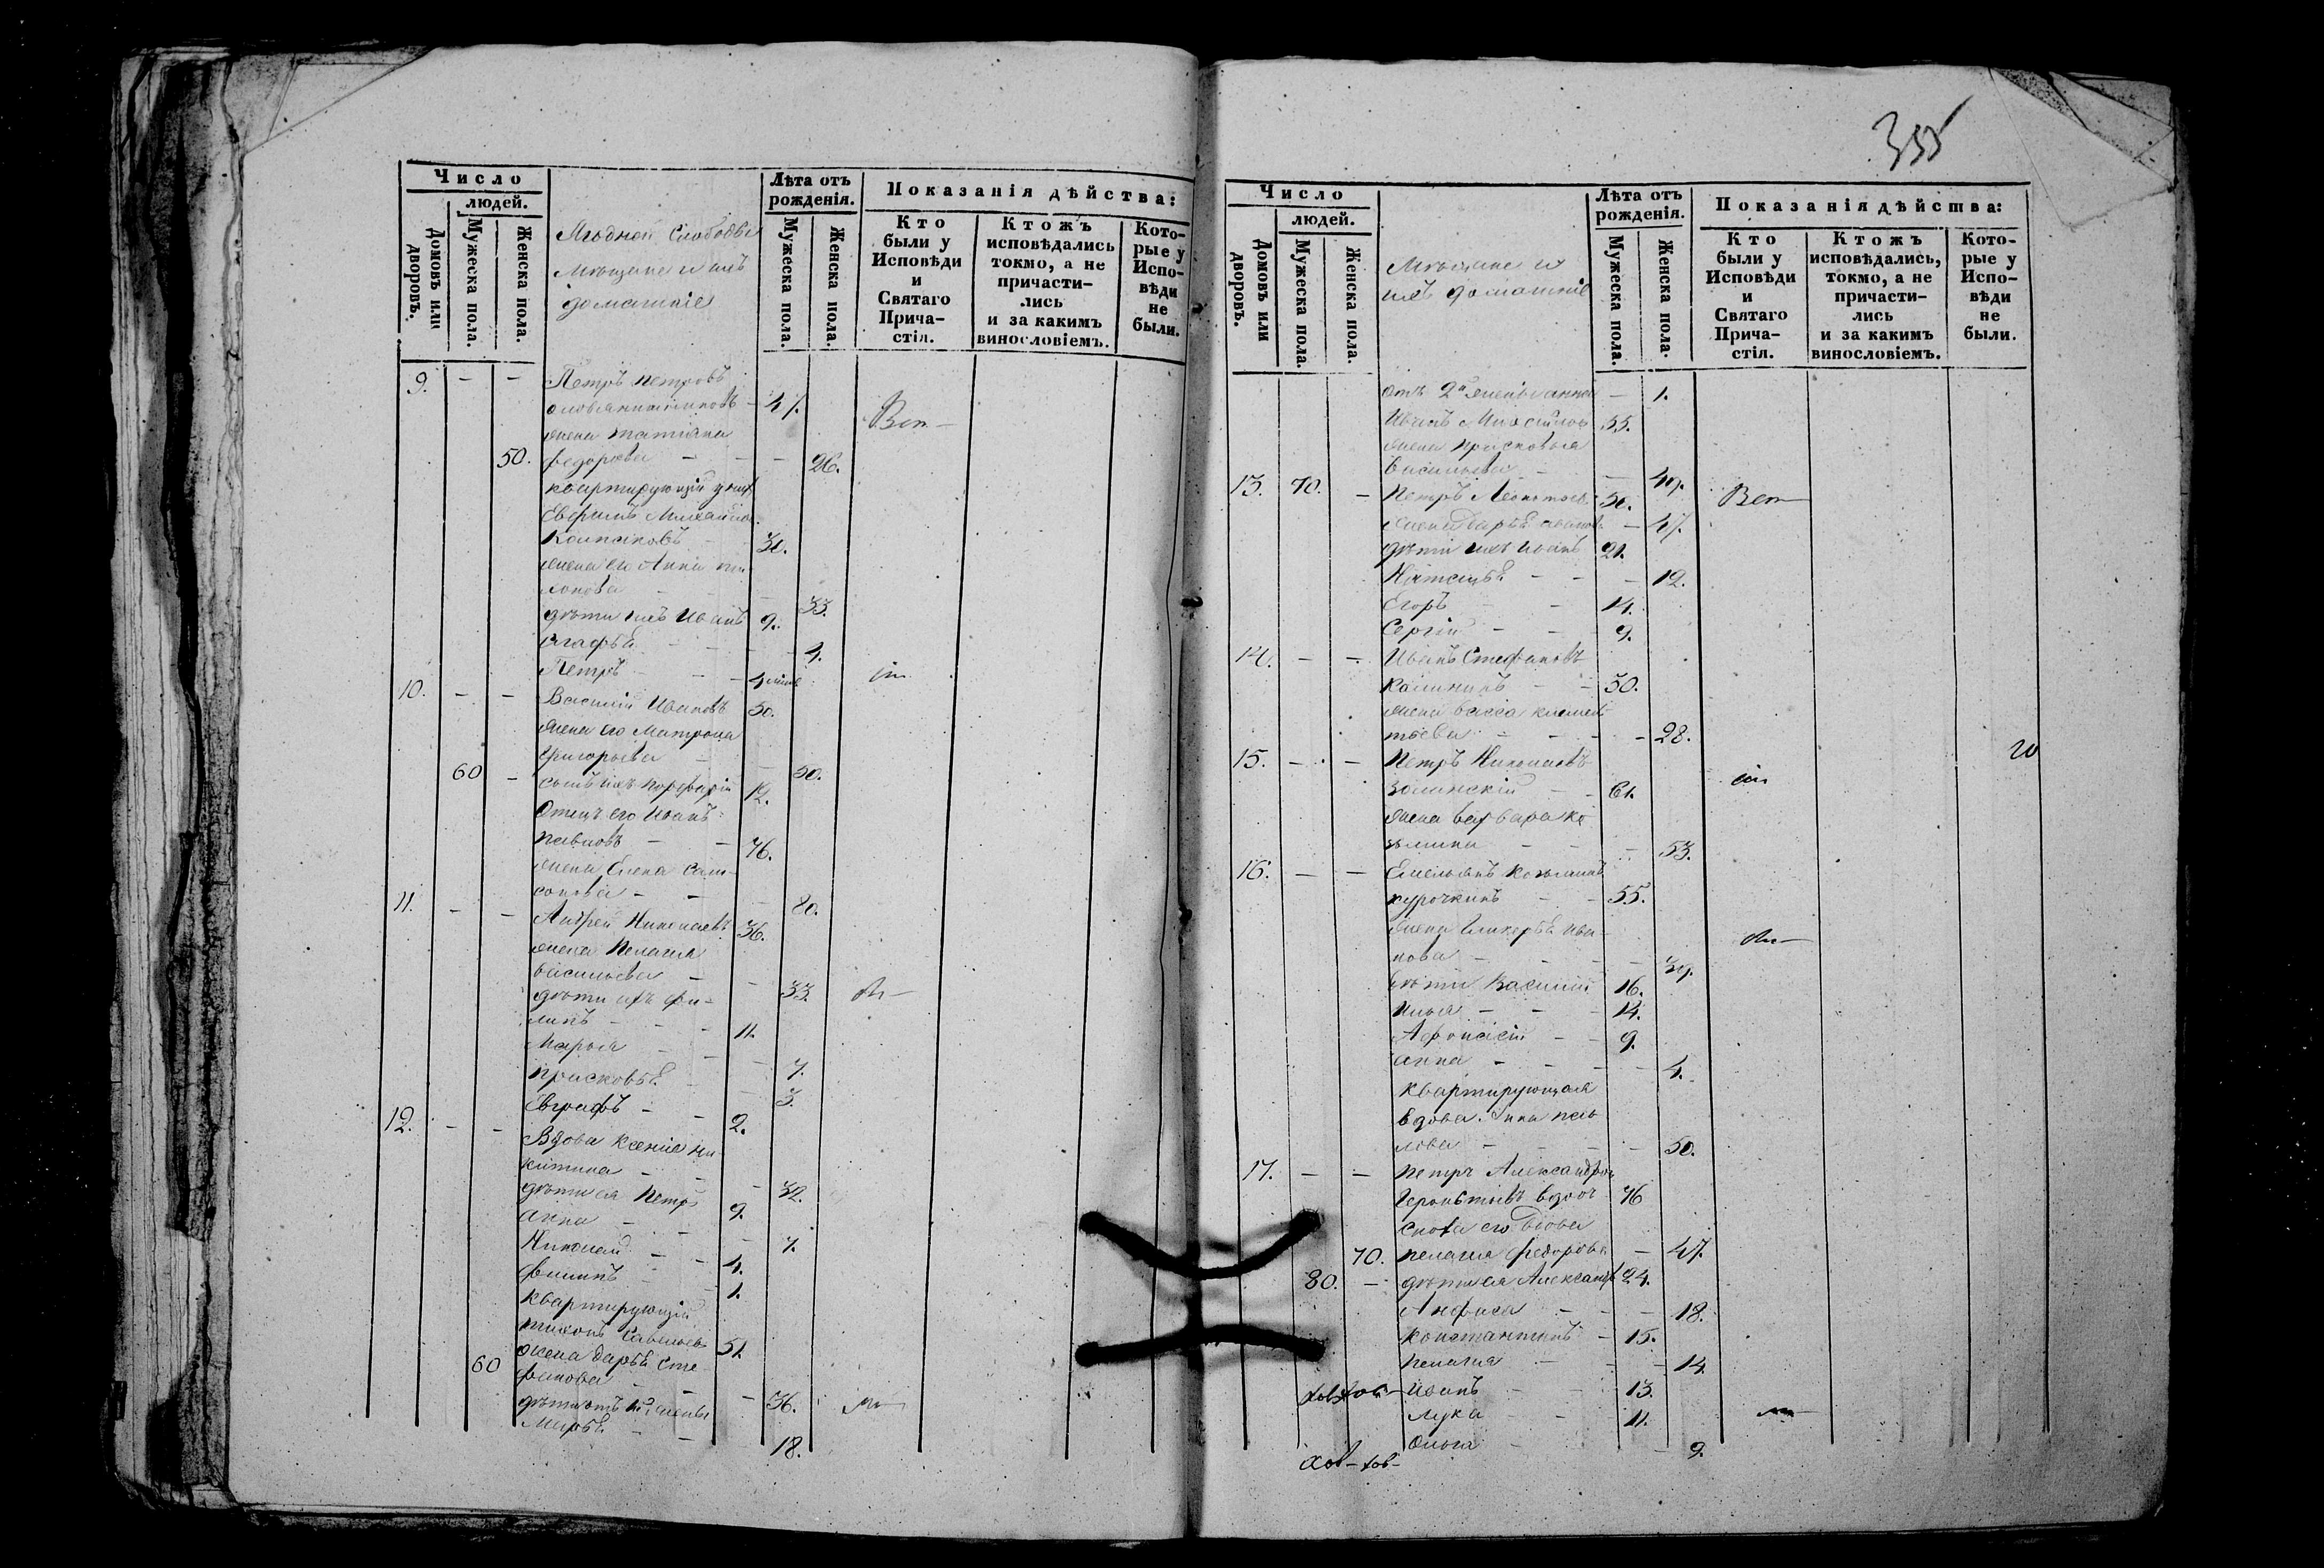 355
Число
людей.
Домовъ или дворовъ.
Мужеска пола.
Женска пола.
Ягодной Слободы
Мѣщане и ихъ
домашніе
Лѣта отъ
рожденія.
Мужеска пола.
Женска пола.
Показанія дѣйства:
Кто
были у
Исповѣди
и
Святаго
Прича-
стія.
Ктожъ
исповѣдались
токмо, а не
причасти-
лись
и за какимъ
винословіемъ.
Кото-
рые у
Испо-
вѣди
не
были.
9. — — Петръ Петровъ
— 47.
жена Татіана
50. Федорова — — — 26.
квартирующій у них
Михайлов
30.
жена его Анна
— 33.
дѣти ихъ Иванъ 9.
Агафья — — — 4.
Петръ — — —
10. — — Василій Ивановъ 50.
жена его Матрона
Григорьева — — 50.
60 — сынъ ихъ Порфирій 12.
Отецъ его Иванъ
Павловъ — — 76.
жена Елена Сам-
сонова — — — 80.
11. — — Андрей Николаевъ 36.
жена Пелагея
Васильева — — 33.
дѣти ихъ Фи-
липъ — — — 11.
Марья — — — 7.
Прасковья — — 3.
Евграфъ — — 2.
12. — — Вдова Ксенія Ни
китина — — — 32.
дѣти ея Петръ 9.
Анна — — — 7.
Николай — — 4.
Филипъ — — 1.
Квартирующій
Тихонъ Савельевъ 51.
60 жена Дарья Сте
фанова — — — 36.
дѣти отъ 1й жены
Марья — — 18.
Число
людей.
Домовъ или дворовъ.
Мужеска пола.
Женска пола.
Мѣщане и
ихъ домашніе
Лѣта отъ
рожденія.
Мужеска пола.
Женска пола.
Показанія дѣйства:
Кто
были у
Исповѣди
и
Святаго
Прича-
стія.
Ктожъ
исповѣдались,
токмо, а не
причасти-
лись
и за какимъ
винословіемъ.
Кото-
рые у
Испо-
вѣди
не
были.
отъ 2й жены Анна — 1.
Иванъ 55.
жена Прасковья
Васильева — — 49.
13. 70. — Петръ 50.
жена Дарья Иванов — 47.
дѣти ихъ Иванъ 21.
Наталья — — — 12.
Егоръ — — 14.
Сергій — — 9.
14. — — Иванъ Стефановъ
Калининъ — — 30.
жена Васса Климен
тьева — — — 28.
15. — — Петръ Николаевъ
— — 61.
жена Варвара Ко
зьмина — — — 53.
16. — — Емельянъ Козьминъ
Курочкинъ — — 55.
жена Гликерья Ива
нова — — — 39.
дѣти Василій 16.
Илья — — — 14.
Афонасій — — 9.
Анна — — — 4.
Квартирующая
вдова Анна Пав
лова — — — 50.
17. — — Петръ Александров
вдов 76
Сноха его вдова
70. Пелагея Федорова — 47.
80. — дѣти ея Александръ 24.
Анфиса — — — 18.
Константинъ — 15.
Пелагея — — — 14.
Иванъ — — 13.
Лука — — 11.
Ольга — — 9.